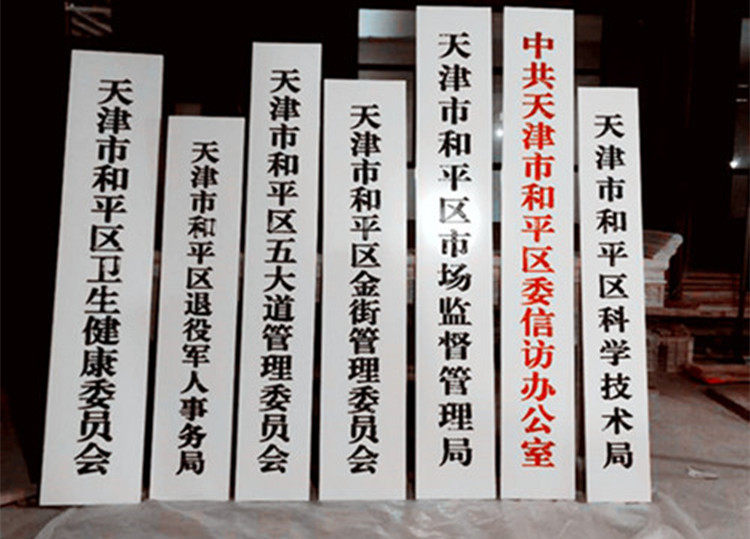 天津市和平区卫生健康委员会
天津市和平区退役军人事务局
天津市和平区五大道管理委员会
天津市和平区金街管理委员会
天津市和平区市场监督管理局
中共天津市和平区委信访办公室
天津市和平区科学技术局